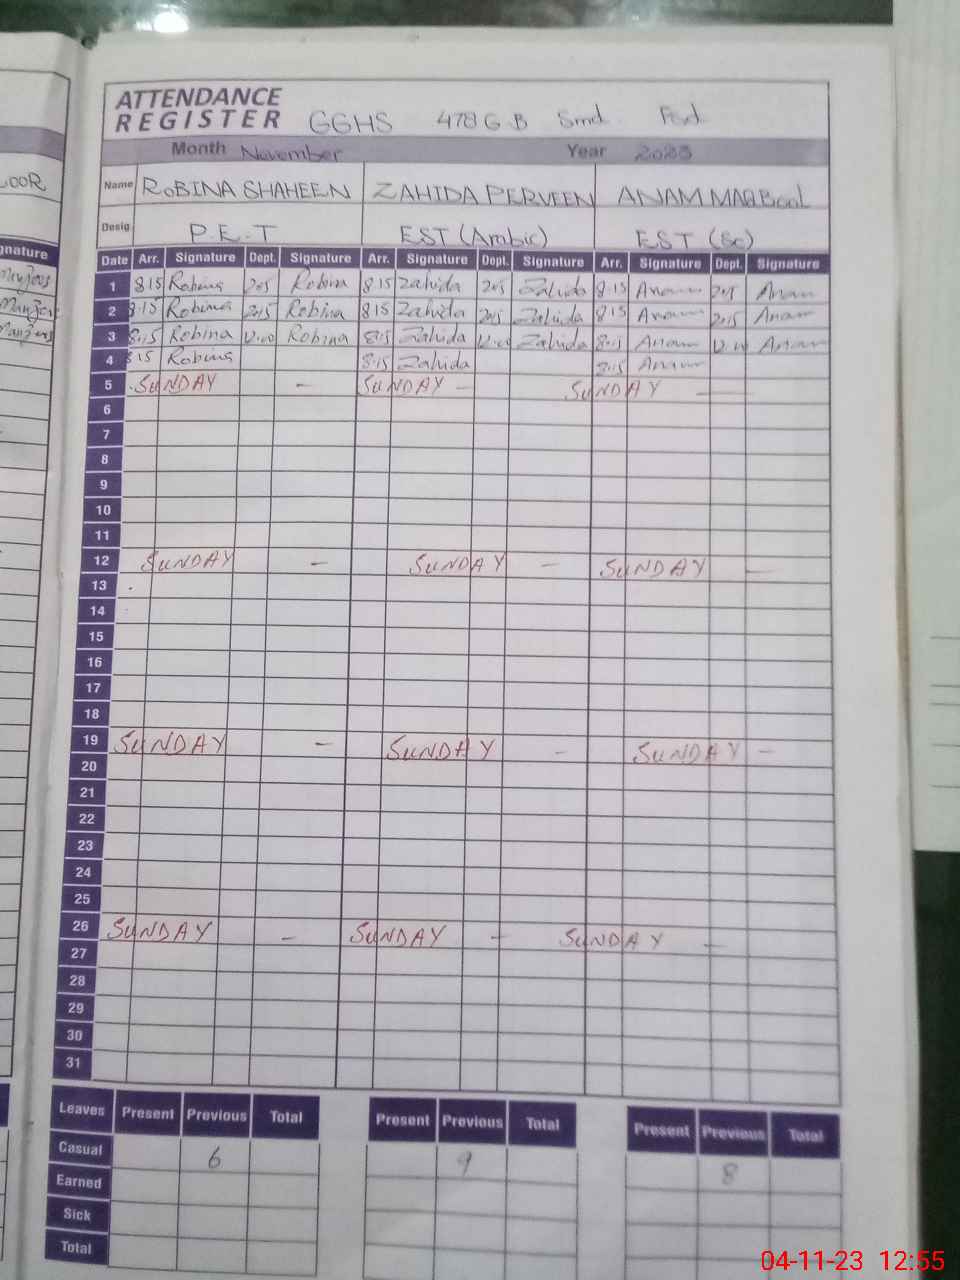 ATTENDANCE
REGISTER GGHS 478 G B Smd. Fsd.
Month November Year 2023
Name ROBINA SHAHEEN ZAHIDA PERVEEN ANAM MAQBOOL
Desig P.E.T EST (Arabic) EST (Sc)
Date Arr. Signature Dept. Signature Arr. Signature Dept. Signature Arr. Signature Dept. Signature
1 8:15 Robina 2:15 Robina 8:15 Zahida 2:15 Zahida 8:15 Anam 2:15 Anam
2 8:15 Robina 2:15 Robina 8:15 Zahida 2:15 Zahida 8:15 Anam 2:15 Anam
3 8:15 Robina 12:00 Robina 8:15 Zahida 12:00 Zahida 8:15 Anam 12:00 Anam
4 8:15 Robina 8:15 Zahida 8:15 Anam
5 SUNDAY - SUNDAY - SUNDAY -
6
7
8
9
10
11
12 SUNDAY - SUNDAY - SUNDAY -
13
14
15
16
17
18
19 SUNDAY - SUNDAY - SUNDAY -
20
21
22
23
24
25
26 SUNDAY - SUNDAY - SUNDAY -
27
28
29
30
31
Leaves Present Previous Total Present Previous Total Present Previous Total
Casual 6 9 8
Earned
Sick
Total
04-11-23 12:55